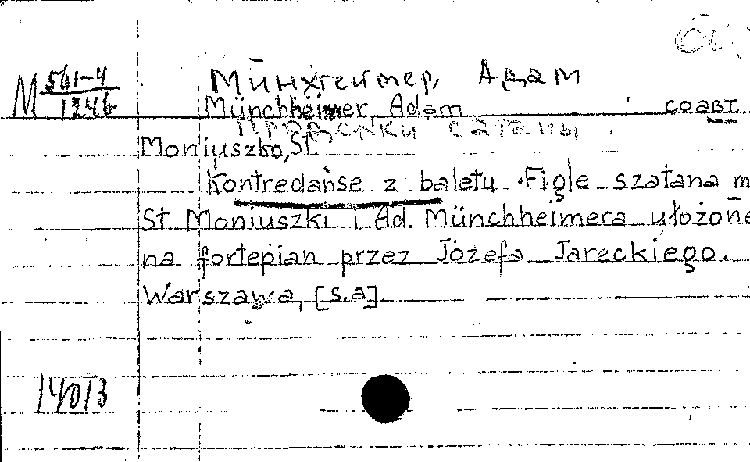 Мӣнхгеймер, Адам
М 561-4
1246
Münchheimer, Adam соавт.
Проделки сатаны
Moniuszko, St.
Kontredanse z baletu Figle szatana m
St. Moniuszki i Ad. Münchheimera ułożone
na fortepian przez Józefa Jareckiego.
Warszawa, [s.a]
14013